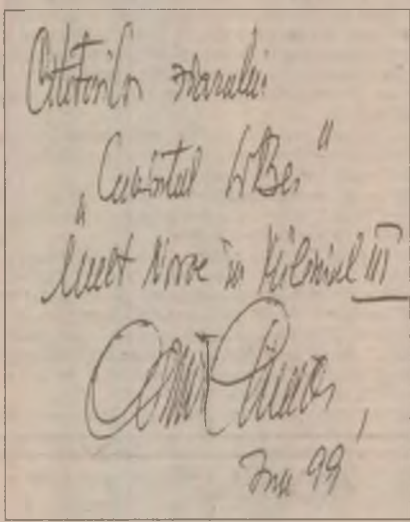 Cititorilor ziarului
„Cuvântul liber"
Mult Noroc în Mileniul III
99'